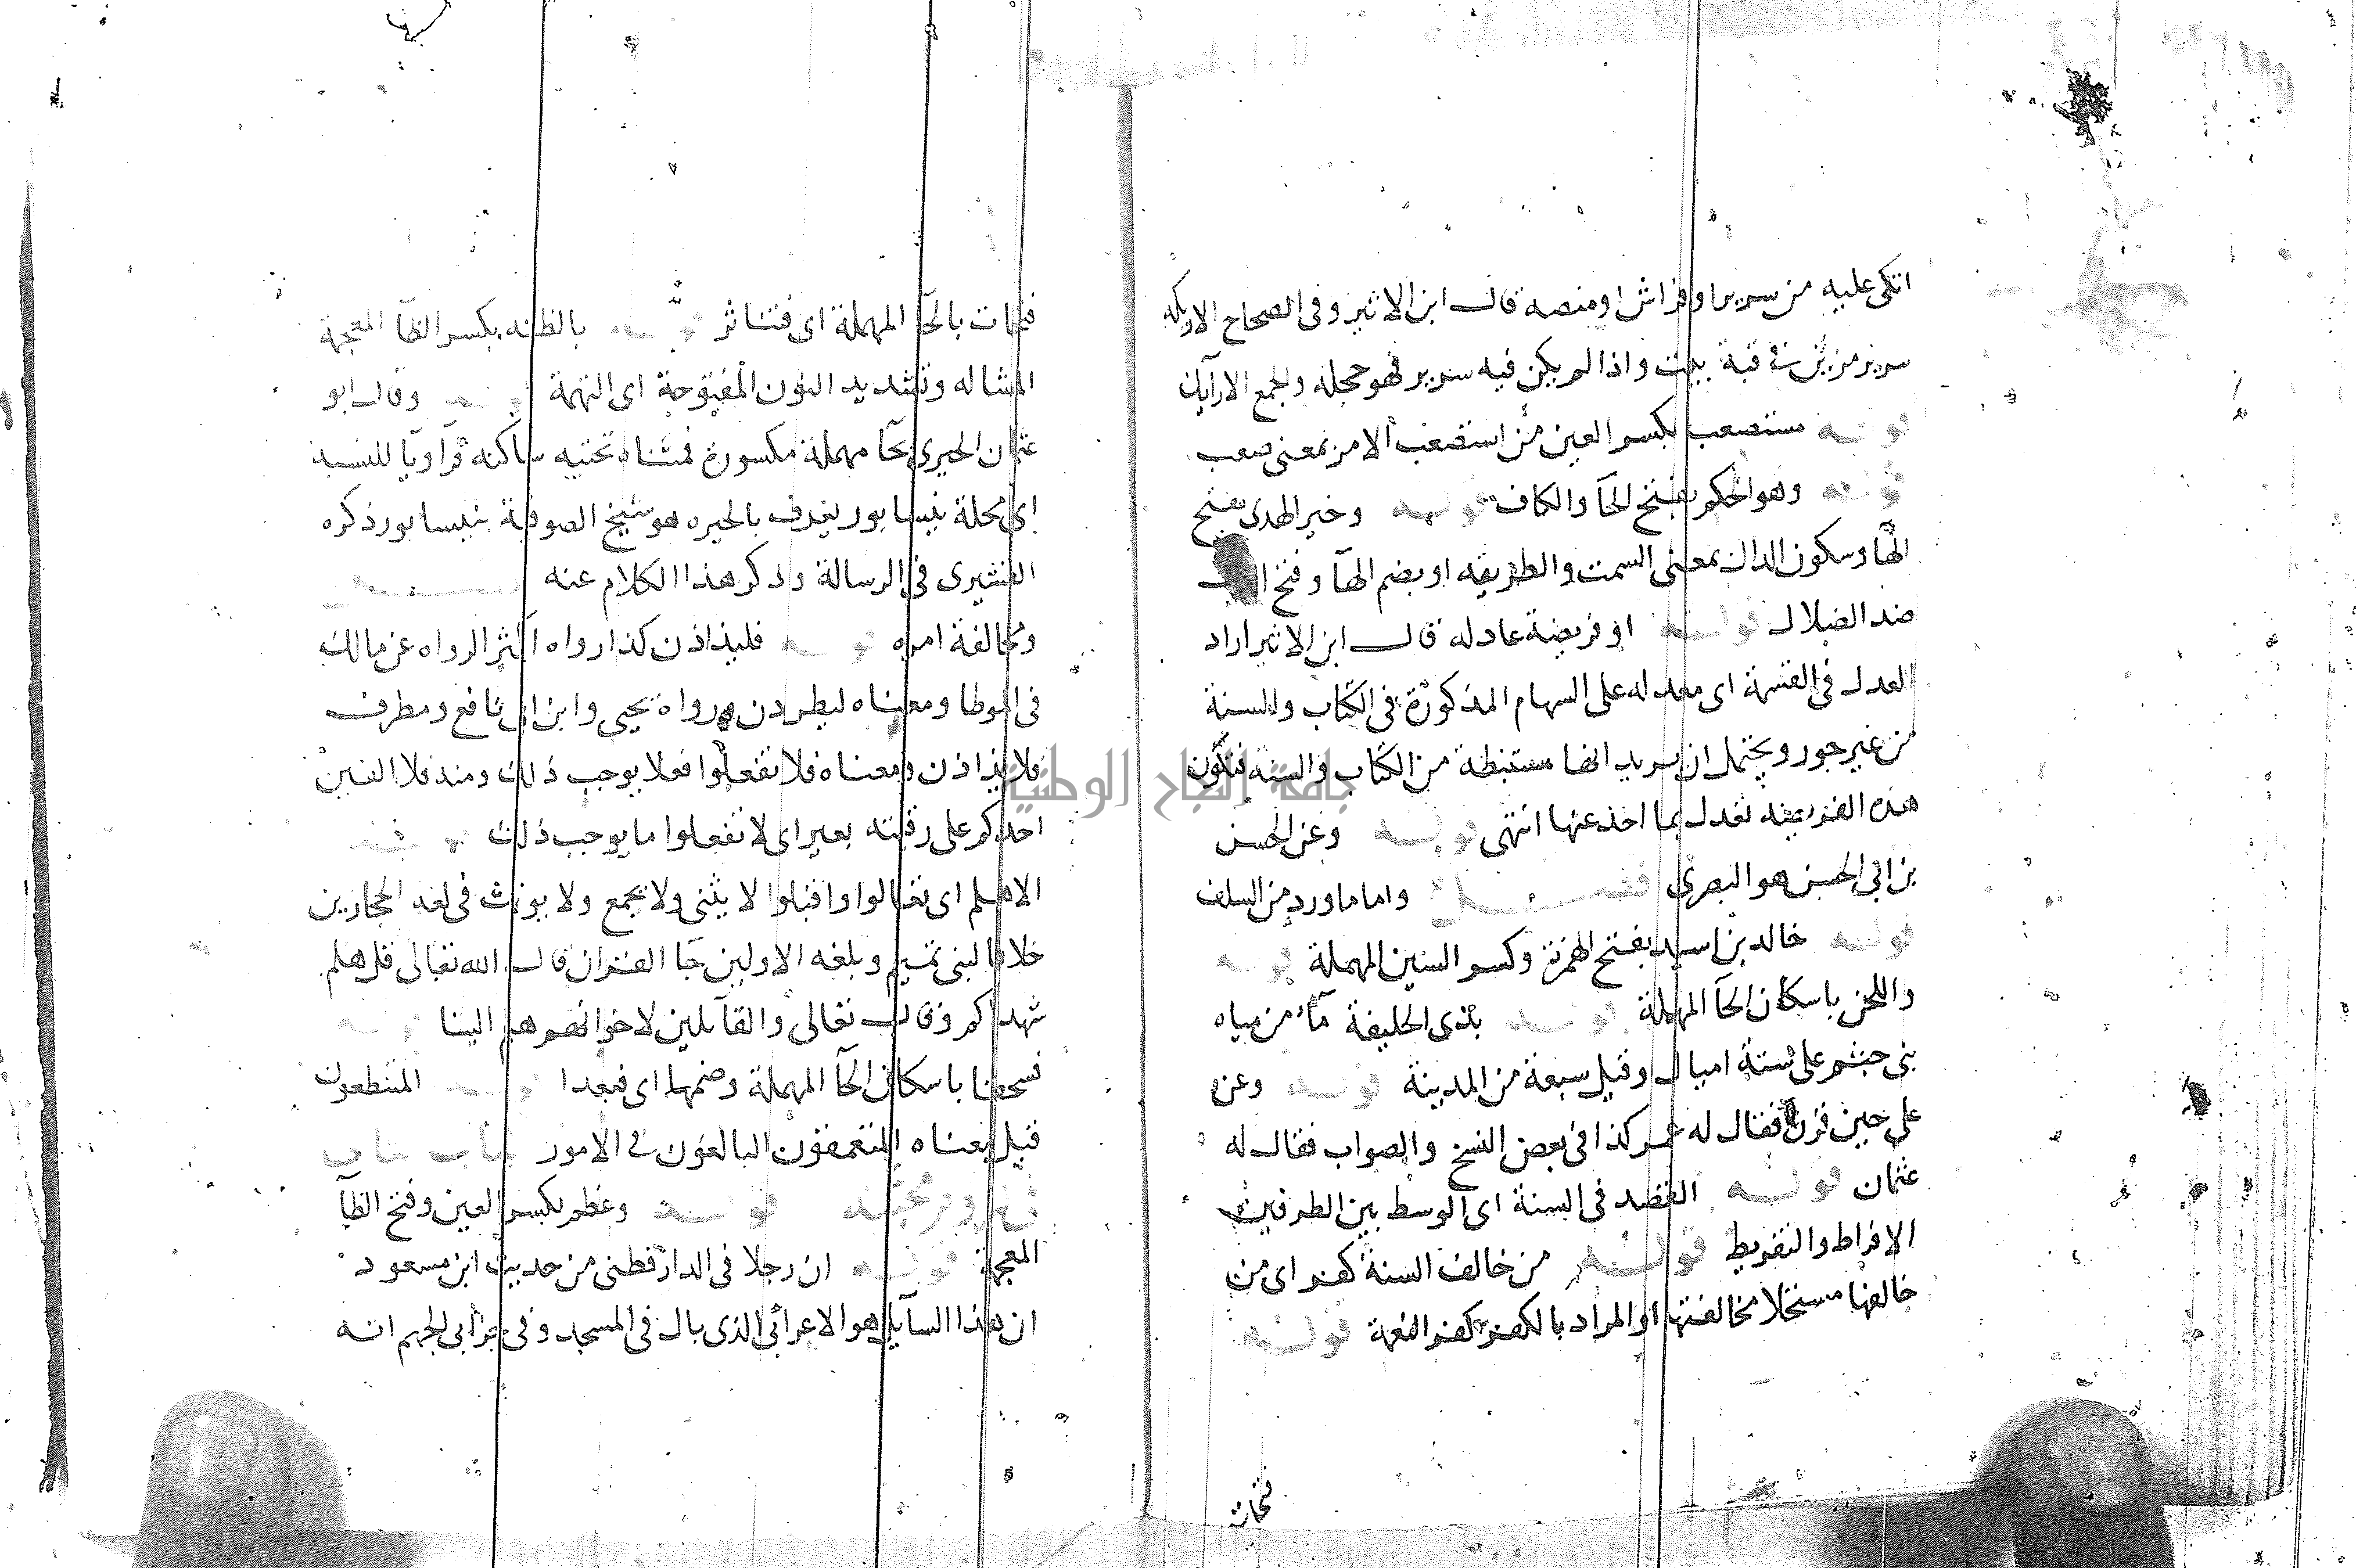 اتكى عليه من سرير او فراش او منصه قال ابن الاثير وفى الصحاح الاريكه
سرير مزين فى قبة بيت واذا لم يكن فيه سرير فهو حجله والجمع الارآيك
قوله مستصعب بكسر العين من استصعب الامر بمعنى صعب
قوله وهو الحكم بفتح الحآ والكاف قوله وخير الهدى بفتح
الهآ وسكون الدال بمعنى السمت والطريقه او بضم الهآ وفتح
ضد الضلال قوله او فريضة عادله قال ابن الاثير اراد
العدل فى القسمة اى معدله على السهام المذكورة فى الكتاب والسنة
من غير جور ويحتمل ان يريد انها مستنبطة من الكتاب والسنه فتكون
هذه الفريضه تعدل بما اخذ عنها انتهى قوله وعن الحسن
بن ابى الحسن هو البصرى فصل واما ما ورد من السلف
قوله خالد بن اسيد بفتح الهمزة وكسر السين المهملة قوله
واللحن باسكان الحآ المهملة قوله بذى الحليفة مآء من مياه
بنى جشم على ستة اميال وقيل سبعة من المدينة قوله وعن
على حين قرن فقال له عمر كذا فى بعض النسخ والصواب فقال له
عثمان قوله القصد فى السنة اى الوسط بين الطرفين
الافراط والتفريط قوله من خالف السنة كفر اى من
خالفها مستحلا مخالفتها او المراد بالكفر كفر النعمة قوله
فتحات
فتحات بالحآ المهملة اى فتتناثر قوله بالظنه بكسر الظآ المعجمة
المشاله وتشديد النون المفتوحة اى التهمة قوله وقال ابو
عثمان الحيرى بحآ مهملة مكسورة فمثناه تحتيه ساكنه فرآ ويا للنسبة
اى محلة بنيسابور يعرف بالحيره هو شيخ الصوفية بنيسابور ذكره
القشيرى فى الرسالة وذكر هذا الكلام عنه فصل
ومخالفة امره قوله فليذاذن كذا رواه اكثر الرواه عن مالك
فى الموطا ومعناه ليطردن ورواه يحيى وابن نافع ومطرف
فلا يذاذن ومعناه فلا تفعلوا فعلا يوجب ذلك ومنه فلا الفين
احدكم على رقبته بعير اى لا تفعلوا ما يوجب ذلك قوله
الا هلم اى تعالوا واقبلوا لا يثنى ولا يجمع ولا يونث فى لغه الحجازين
خلافا لبنى تميم وبلغه الاولين جا القران قال الله تعالى قل هلم
شهداكم وقال تعالى والقآيلين لاخوانهم هلم الينا قوله
فسحقا باسكان الحآ المهملة وضمها اى فبعدا قوله المتنطعون
قيل معناه المتعمقون البالغون فى الامور
قوله وعظم بكسر العين وفتح الظآ
المعجمة قوله ان رجلا فى الدارقطنى من حديث ابن مسعود
ان هذا السآيل هو الاعرابى الذى بال فى المسجد وفى ابى الجهم انه
جامعة النجاح الوطنية